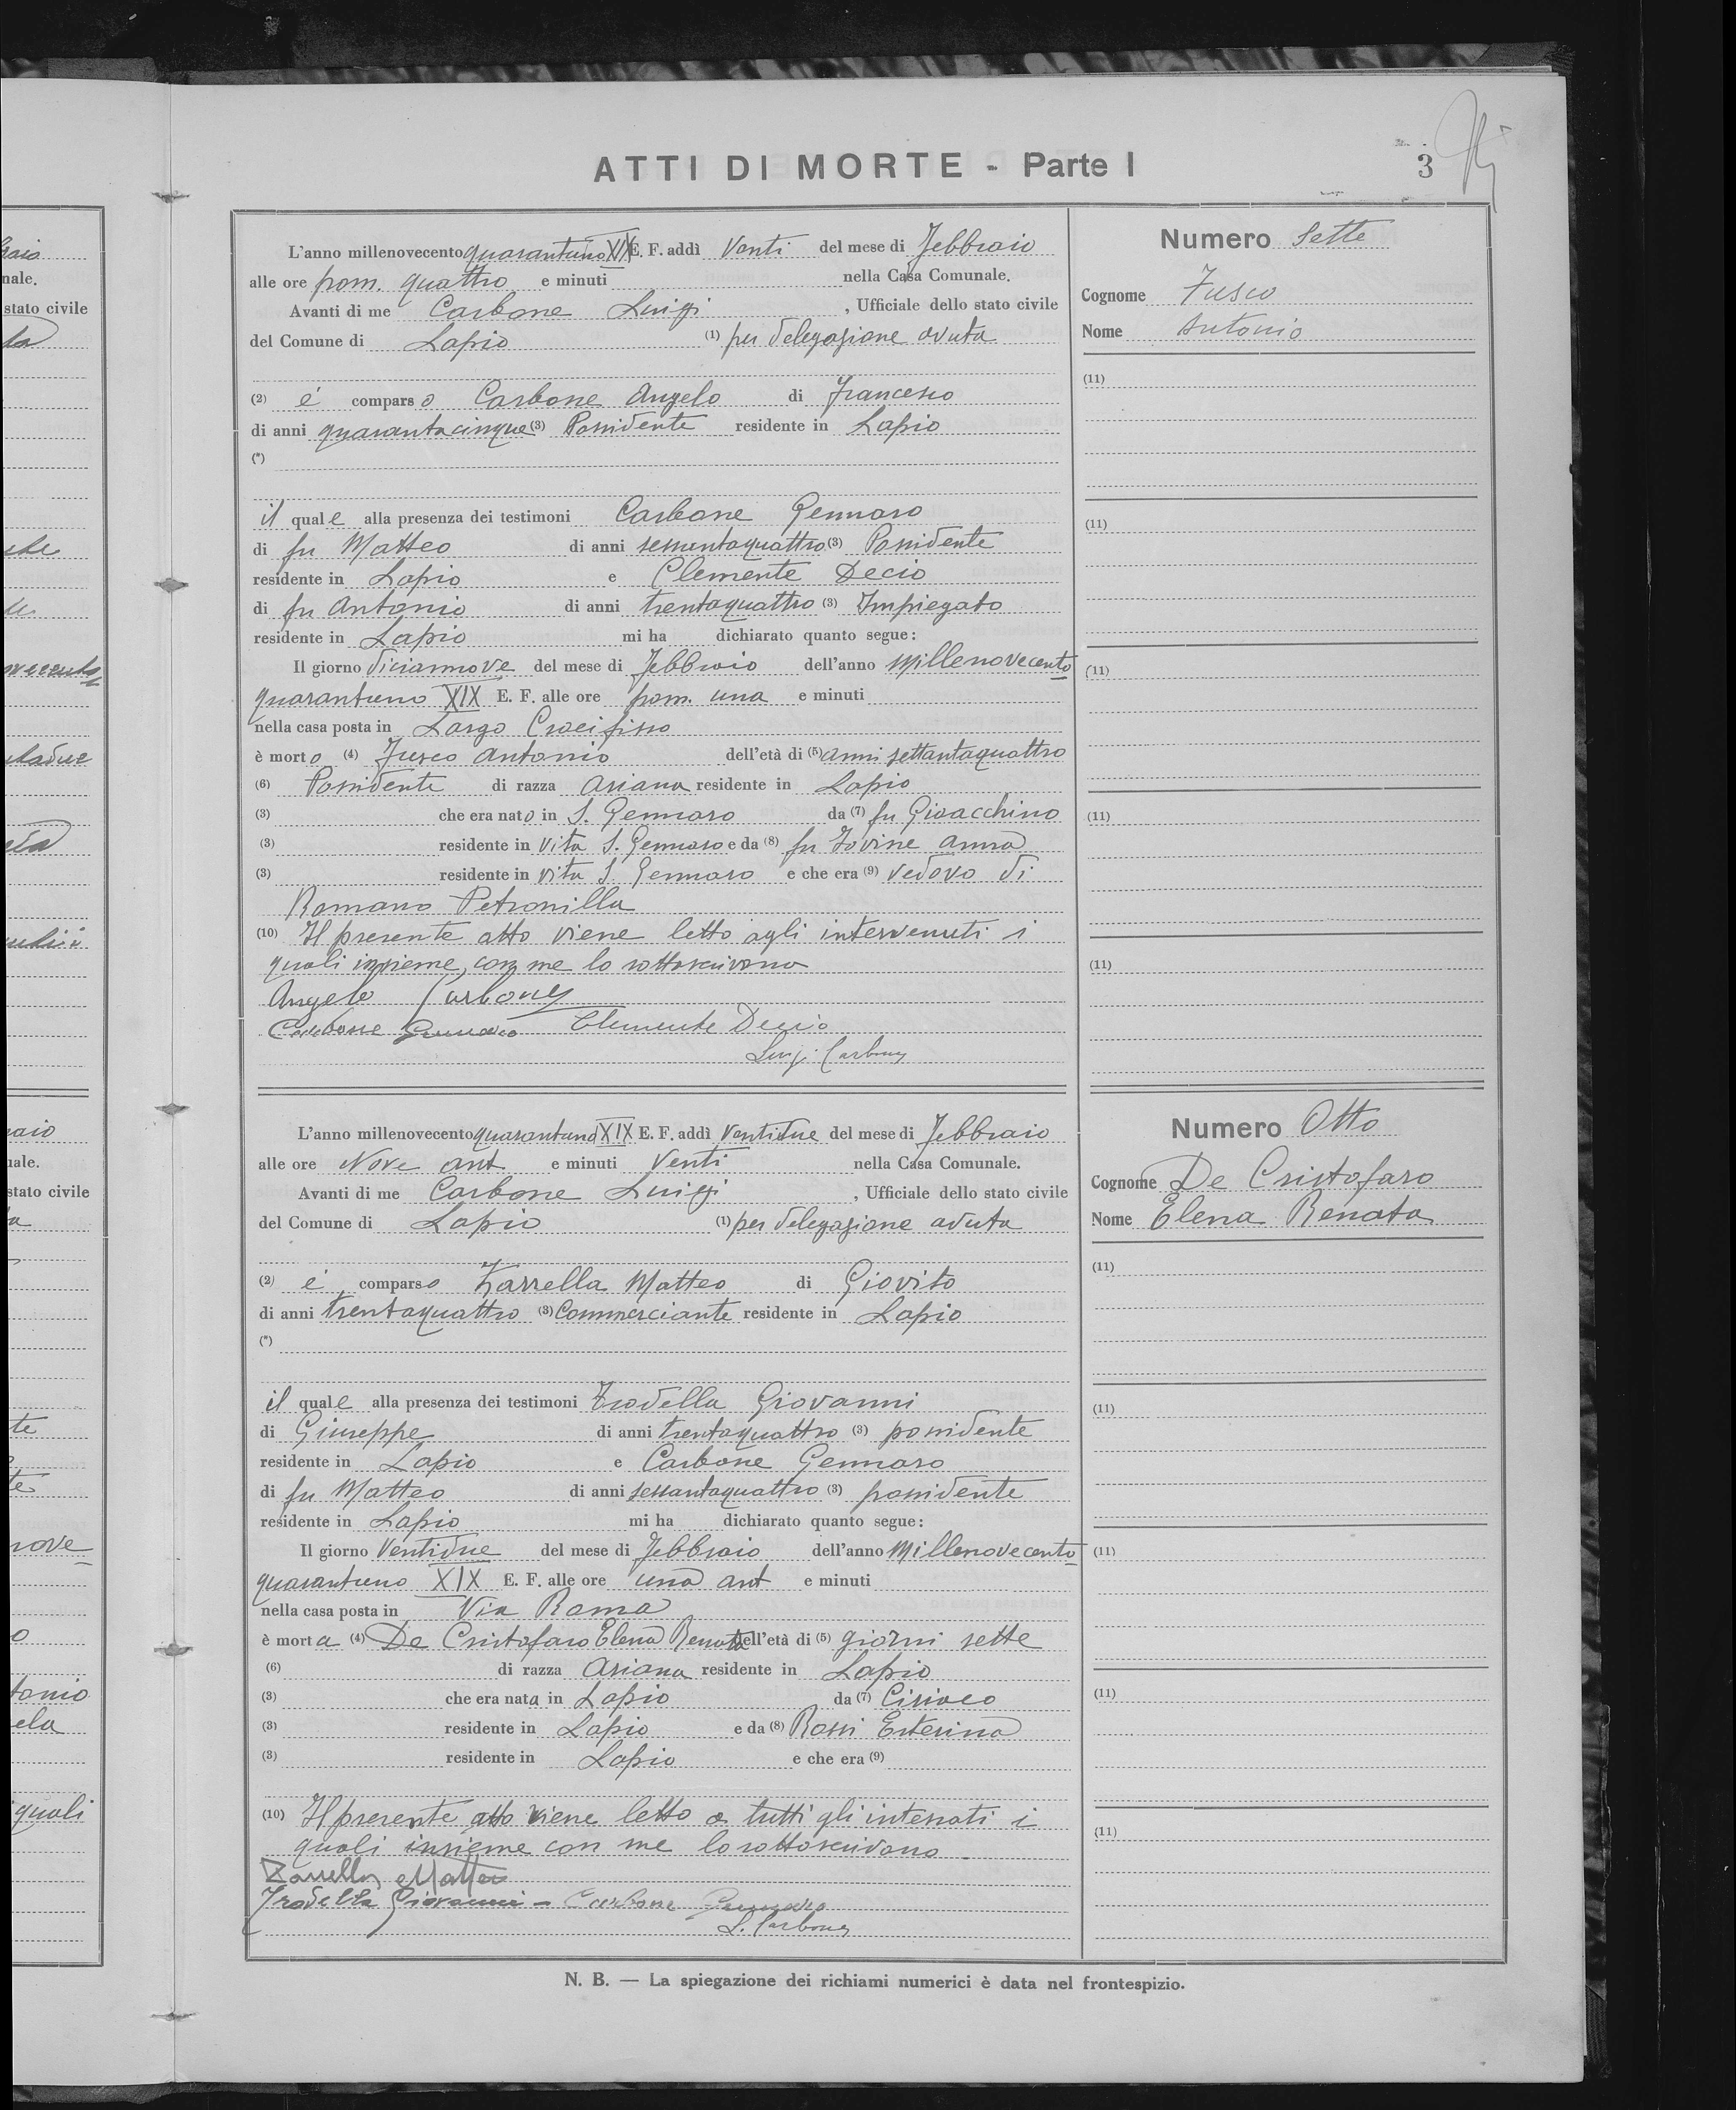 ATTI DI MORTE - Parte I
3
Numero Sette
Cognome Fusco
Nome Antonio
L'anno millenovecento quarantuno XIX E. F. addì Venti del mese di Febbraio
alle ore pom. quattro e minuti nella Casa Comunale.
Avanti di me Carbone Luigi , Ufficiale dello stato civile
del Comune di Lapio (1) per delegazione avuta
(2) é comparso Carbone Angelo di Francesco
di anni quarantacinque (3) Possidente residente in Lapio
(*)
il quale alla presenza dei testimoni Carbone Gennaro
di fu Matteo di anni sessantaquattro (3) Possidente
residente in Lapio e Clemente Decio
di fu Antonio di anni trentaquattro (3) Impiegato
residente in Lapio mi ha dichiarato quanto segue:
Il giorno diciannove del mese di Febbraio dell'anno Millenovecento
quarantuno XIX E. F. alle ore pom. una e minuti
nella casa posta in Largo Crocifisso
è morto (4) Fusco Antonio dell'età di (5) anni settantaquattro
(6) Possidente di razza Ariana residente in Lapio
(3) che era nato in S. Gennaro da (7) fu Gioacchino
(3) residente in vita S. Gennaro e da (8) fu Iovine Anna
(3) residente in vita S. Gennaro e che era (9) vedovo di
Romano Petronilla
(10) Il presente atto viene letto agli intervenuti i
quali insieme, con me lo sottoscrivono
Angelo Carbone
Carbone Gennaro Clemente Decio
Luigi Carbone
(11)
(11)
(11)
(11)
(11)
Numero Otto
Cognome De Cristofaro
Nome Elena Renata
L'anno millenovecento quarantuno XIX E. F. addì Ventidue del mese di Febbraio
alle ore Nove ant e minuti Venti nella Casa Comunale.
Avanti di me Carbone Luigi , Ufficiale dello stato civile
del Comune di Lapio (1) per delegazione avuta
(2) é comparso Zarrella Matteo di Giovito
di anni trentaquattro (3) Commerciante residente in Lapio
(*)
il quale alla presenza dei testimoni Trodella Giovanni
di Giuseppe di anni trentaquattro (3) possidente
residente in Lapio e Carbone Gennaro
di fu Matteo di anni sessantaquattro (3) possidente
residente in Lapio mi ha dichiarato quanto segue:
Il giorno Ventidue del mese di Febbraio dell'anno Millenovecento
quarantuno XIX E. F. alle ore una ant e minuti
nella casa posta in Via Roma
è morta (4) De Cristofaro Elena Renata dell'età di (5) giorni sette
(6) di razza Ariana residente in Lapio
(3) che era nata in Lapio da (7) Ciriaco
(3) residente in Lapio e da (8) Rossi Esterina
(3) residente in Lapio e che era (9)
(10) Il presente atto viene letto a tutti gli intessati i
quali insieme con me lo sottoscrivono.
Zarrella Matteo
Trodella Giovanni - Carbone Gennaro
L. Carbone
(11)
(11)
(11)
(11)
(11)
N. B. — La spiegazione dei richiami numerici è data nel frontespizio.